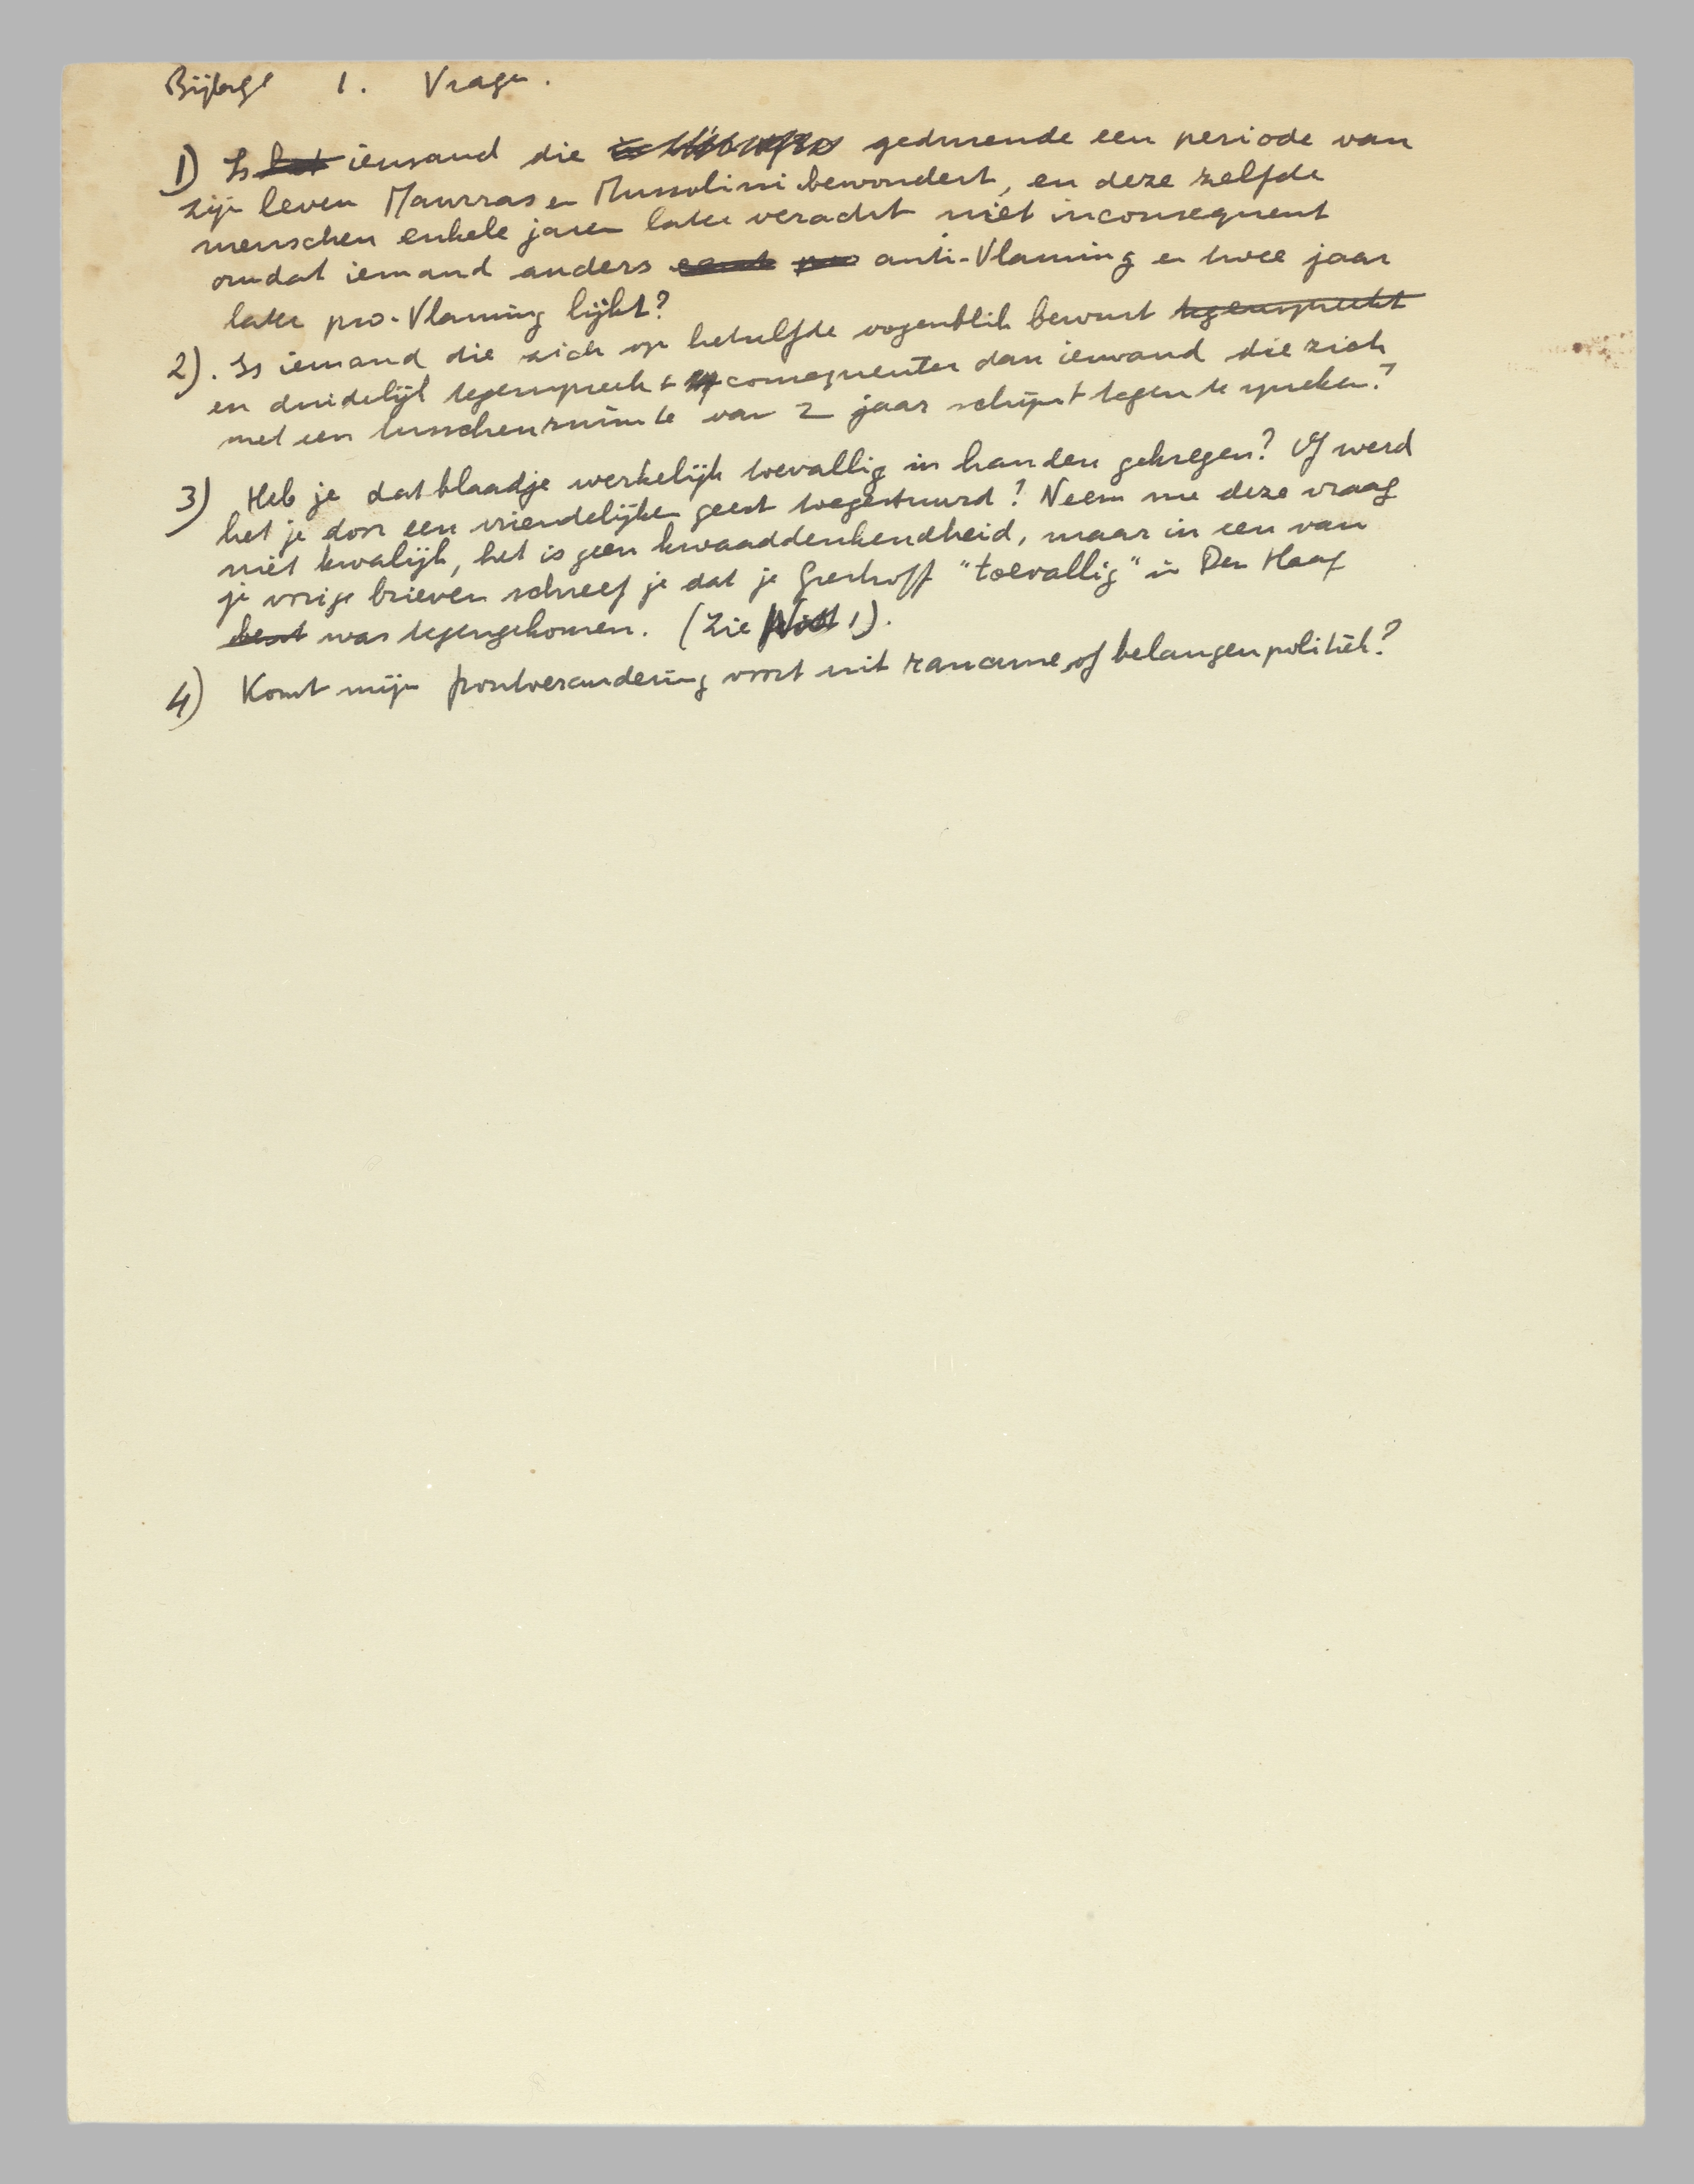 Bijlage 1. Vragen.
1) Is het iemand die gedurende een periode van
zijn leven Maurras en Mussolini bewondert, en deze zelfde
menschen enkele jaren later veracht niet inconsequent
omdat iemand anders eerst pro anti-Vlaming en twee jaar
later pro-Vlaming lijkt?
2). Is iemand die zich op hetzelfde oogenblik bewust tegenspreekt
en duidelijk tegenspreekt consequenter dan iemand die zich
met een tusschenruimte van 2 jaar schijnt tegen te spreken?
3) Heb je dat blaadje werkelijk toevallig in handen gekregen? Of werd
het je door een vriendelijken geest toegestuurd? Neem me deze vraag
niet kwalijk, het is geen kwaaddenkendheid, maar in een van
je vorige brieven schreef je dat je Greshoff "toevallig" in Den Haag
bent was tegengekomen. (Zie 1).
4) Komt mijn frontverandering voort uit rancune of belangenpolitiek?